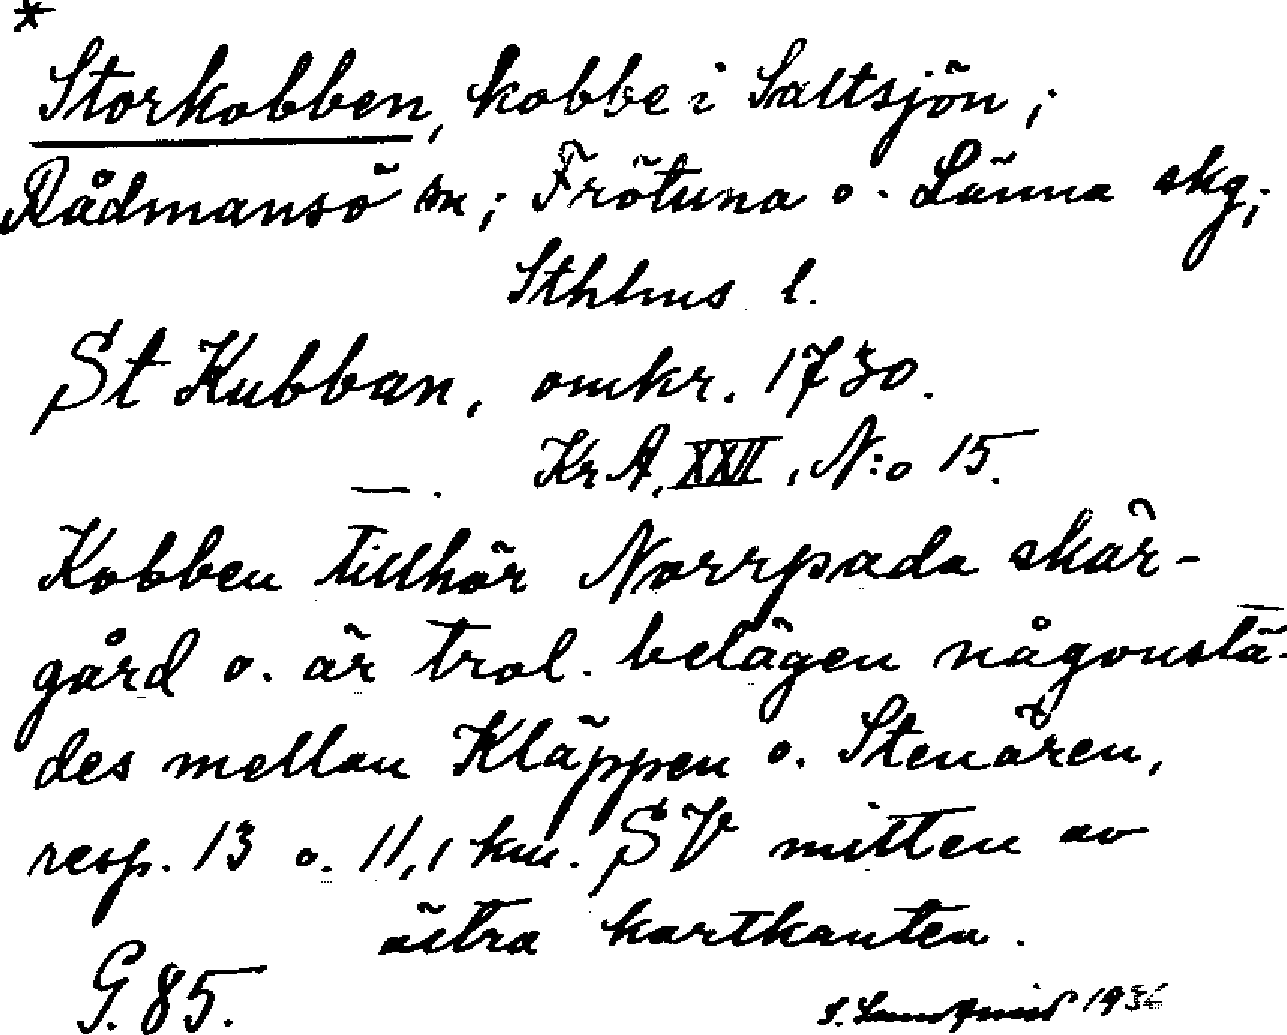 *
Storkobben, kobbe i Saltsjön;
Rådmansö sn; Frötuna o. Länna skg;
Sthlms l.
St Kubban, omkr. 1730.
Kr A, XXVI, N:o 15.
— .
Kobben tillhör Norrpada skär-
gård o. är trol. belägen någonstä-
des mellan Kläppen o. Stenören,
resp. 13 o. 11,1 km. SV mitten av
östra kartkanten.
G. 85.